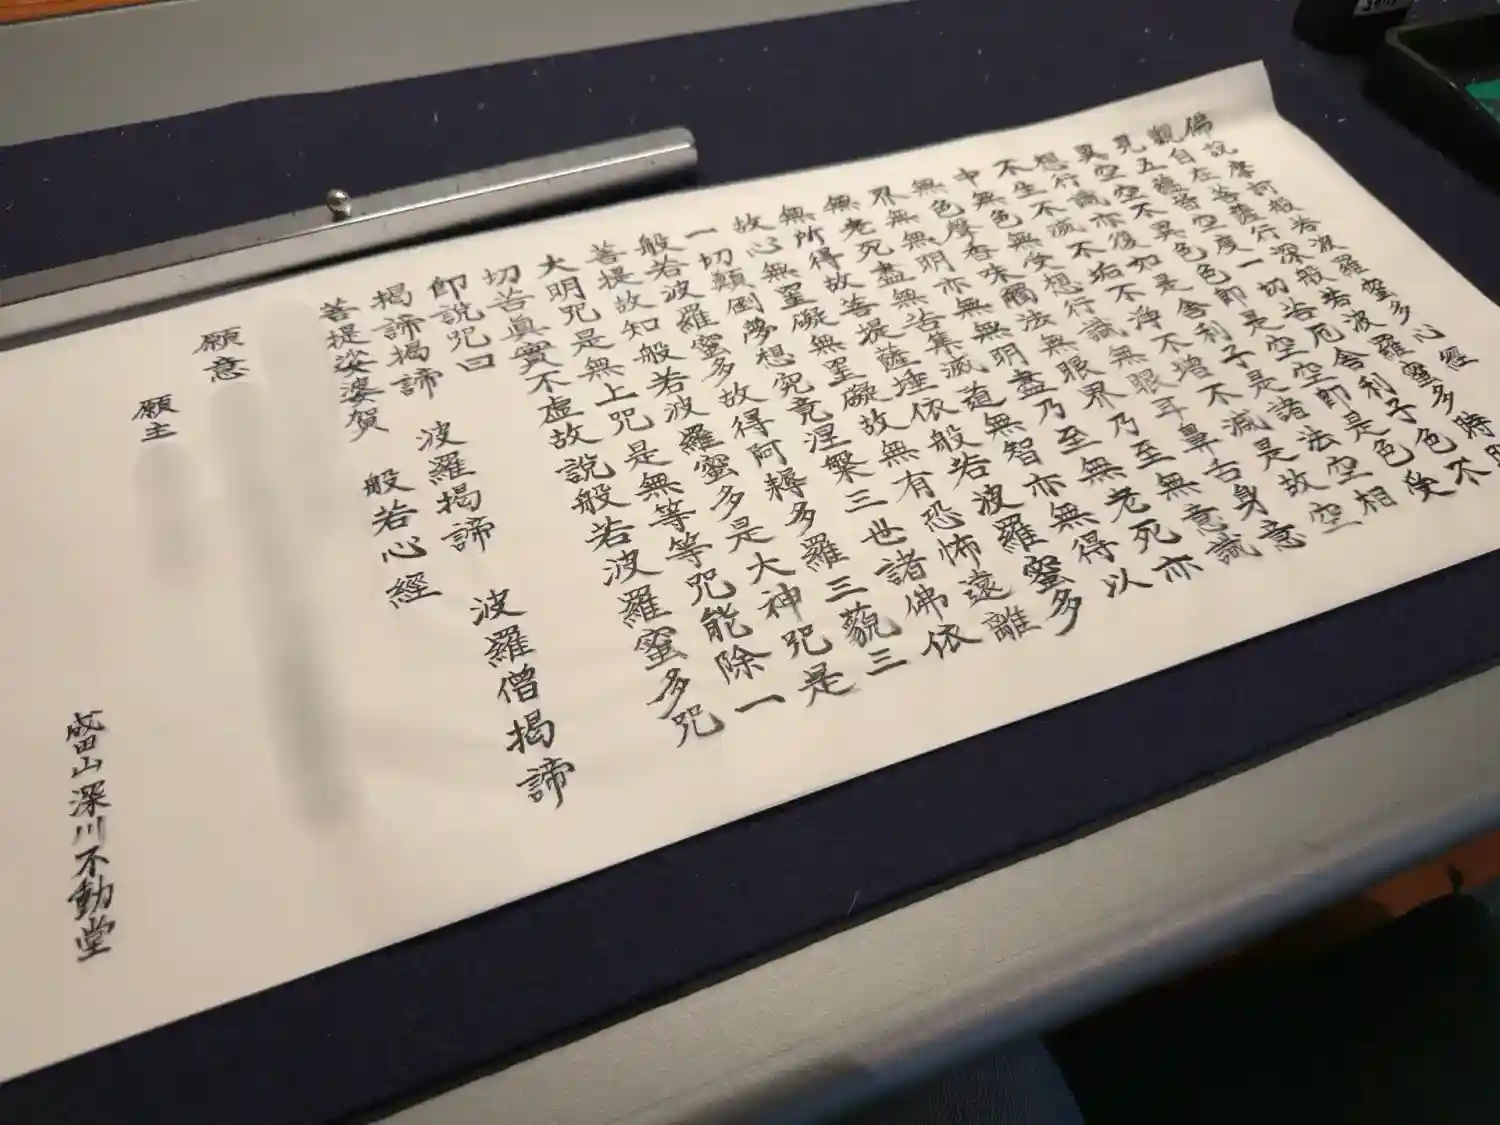 佛說摩訶般若波羅蜜多心經
觀自在菩薩行深般若波羅蜜多時
見五蘊皆空度一切苦厄舍利子色不
異空空不異色色即是空空即是色受
想行識亦復如是舍利子是諸法空相
不生不滅不垢不淨不增不減是故空
中無色無受想行識無眼耳鼻舌身意
無色聲香味觸法無眼界乃至無意識
界無無明亦無無明盡乃至無老死亦
無老死盡無苦集滅道無智亦無得以
無所得故菩提薩埵依般若波羅蜜多
故心無罣礙無罣礙故無有恐怖遠離
一切顛倒夢想究竟涅槃三世諸佛依
般若波羅蜜多故得阿耨多羅三藐三
菩提故知般若波羅蜜多是大神呪是
大明呪是無上呪是無等等呪能除一
切苦眞實不虛故說般若波羅蜜多呪
即說呪曰
揭諦揭諦 波羅揭諦 波羅僧揭諦
菩提娑婆賀 般若心經
願意
願主
成田山深川不動堂